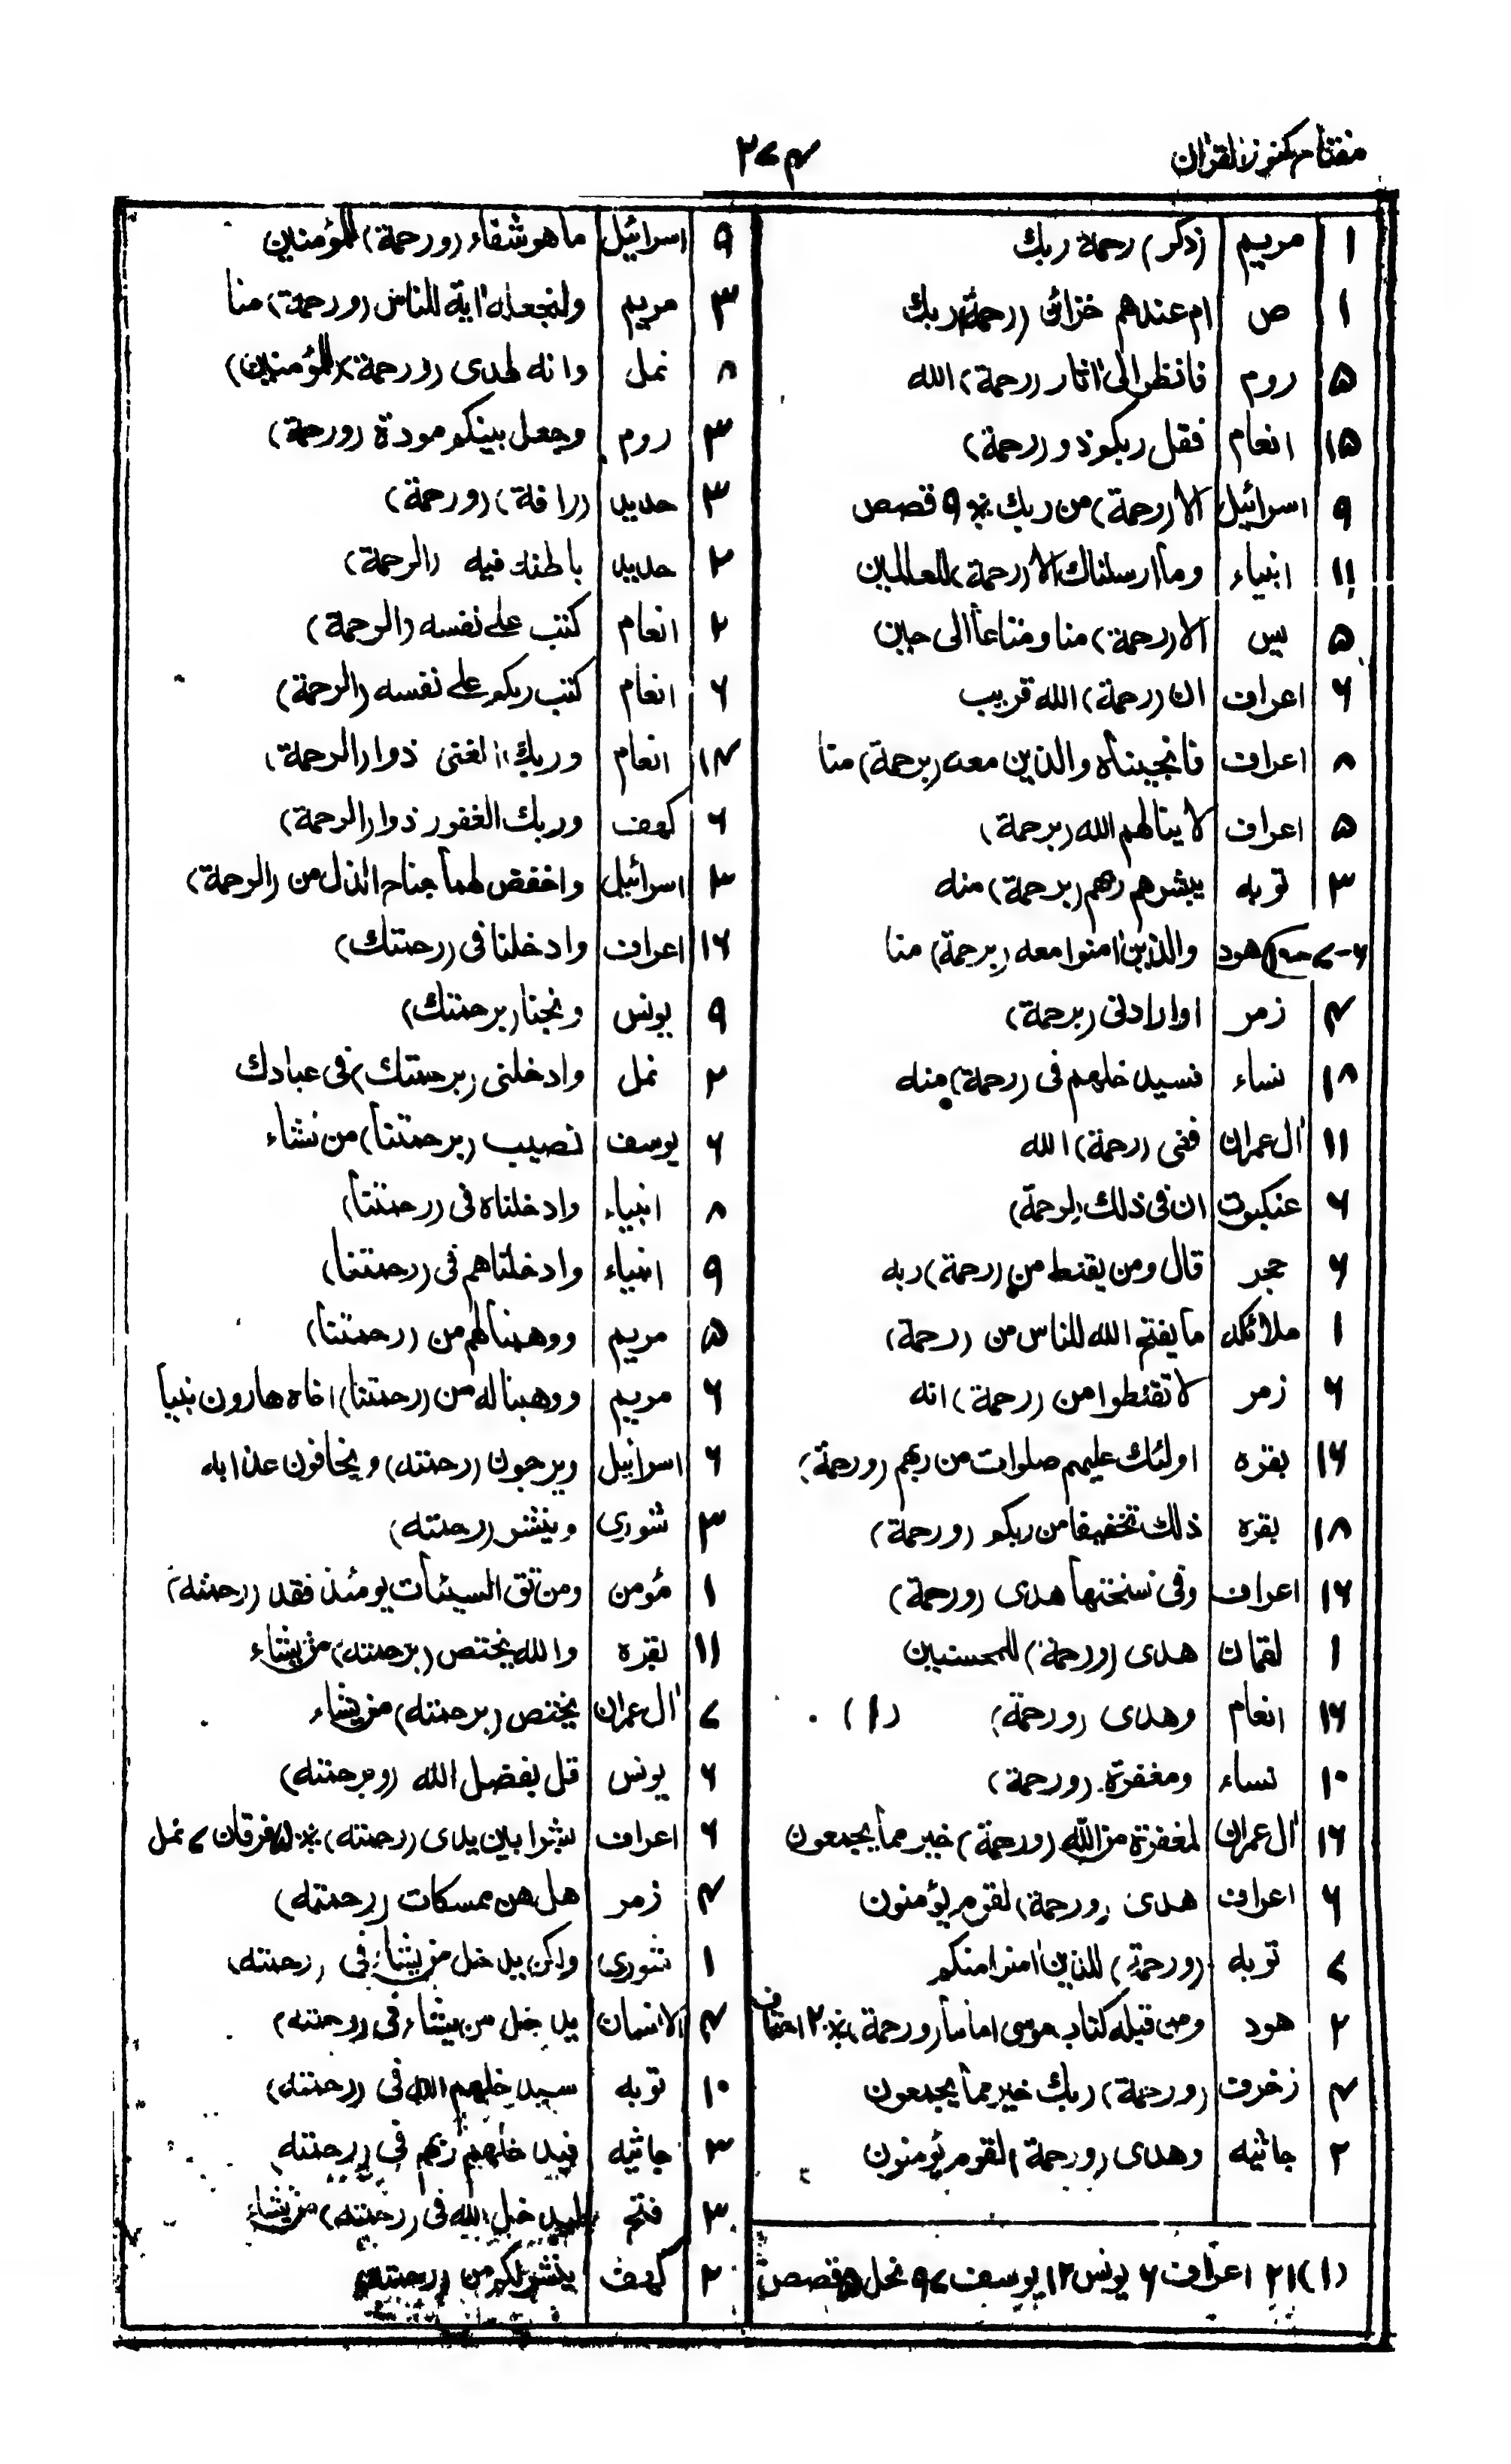 مفتاح کنوز القران
۳۷۴
۱ مریم (ذكر) رحمة ربك
۱ ص ام عندهم خزائن (رحمة) ربك
۵ روم فانظر الى اثار (رحمة) الله
۱۵ انعام فقل ربكم ذو (رحمة)
۹ اسرائیل الا (رحمة) من ربك ※ ۹ قصص
۱۱ انبیاء وما ارسلناك الا (رحمة) للعالمين
۵ یس الا (رحمة) منا ومتاعا الى حين
۶ اعراف ان (رحمة) الله قريب
۸ اعراف فانجيناه والذين معه (برحمة) منا
۵ اعراف لا ينالهم الله (برحمة)
۳ توبه يبشرهم ربهم (برحمة) منه
هود والذين امنوا معه (برحمة) منا
۴ زمر او ارادنى (برحمة)
۱۸ نساء فسيدخلهم فى (رحمة) منه
۱۱ اٰل عمران ففى (رحمة) الله
۶ عنکبوت ان فى ذلك (لرحمة)
۶ حجر قال ومن يقنط من (رحمة) ربه
۱ ملائکه ما يفتح الله للناس من (رحمة)
۶ زمر لا تقنطوا من (رحمة) انه
۱۶ بقره اولئك عليهم صلوات من ربهم (ورحمة)
۱۸ بقره ذلك تخفيفا من ربكم (ورحمة)
۱۶ اعراف وفى نسختها هدى (ورحمة)
۱ لقمان هدى (ورحمة) للمحسنين
۱۶ انعام وهدى (ورحمة) (۱)
۱۰ نساء ومغفرة (ورحمة)
۱۶ اٰل عمران لمغفرة من الله (ورحمة) خير مما يجمعون
۶ اعراف هدى (ورحمة) لقوم يؤمنون
۷ توبه (ورحمة) للذين امنوا منكم
۲ هود ومن قبله كتاب موسى اماما (ورحمة) ※ ۲ احقاف
۴ زخرف (ورحمة) ربك خير مما يجمعون
۲ جاثیه وهدى (ورحمة) لقوم يؤمنون
(۱) ۲۱ اعراف ۶ یونس ۱۲ یوسف ۹۷ نحل ۵ قصص
۹ اسرائیل ما هو شفاء (ورحمة) للمؤمنين
۳ مریم ولنجعله اية للناس (ورحمة) منا
۸ نمل وانه لهدى (ورحمة) (للمؤمنين)
۳ روم وجعل بينكم مودة (ورحمة)
۳ حدید (رافة) (ورحمة)
۲ حدید باطنه فيه (الرحمة)
۲ انعام كتب على نفسه (الرحمة)
۶ انعام كتب ربكم على نفسه (الرحمة)
۱۴ انعام وربك الغنى ذوا (الرحمة)
۶ کهف وربك الغفور ذوا (الرحمة)
۳ اسرائیل واخفض لهما جناح الذل من (الرحمة)
۱۶ اعراف وادخلنا فى (رحمتك)
۹ یونس ونجنا (برحمتك)
۲ نمل وادخلنى (برحمتك) فى عبادك
۶ یوسف نصيب (برحمتنا) من نشاء
۸ انبیاء وادخلناه فى (رحمتنا)
۹ انبیاء وادخلناهم فى (رحمتنا)
۵ مریم ووهبنا لهم من (رحمتنا)
۶ مریم ووهبنا له من (رحمتنا) اخاه هارون نبيا
۶ اسرائیل ويرجون (رحمته) ويخافون عذابه
۳ شوری وينشر (رحمته)
۱ مؤمن ومن تق السيئات يومئذ فقد (رحمته)
۱۱ بقره والله يختص (برحمته) من يشاء
۷ اٰل عمران يختص (برحمته) من يشاء
۶ یونس قل بفضل الله (وبرحمته)
۶ اعراف بشرا بين يدى (رحمته) ※ ۵ فرقان ۷ نمل
۴ زمر هل هن ممسكات (رحمته)
۱ شوری ولكن يدخل من يشاء فى (رحمته)
۴ الانسان يدخل من يشاء فى (رحمته)
۱۰ توبه سيدخلهم الله فى (رحمته)
۳ جاثیه فيدخلهم ربهم فى (رحمته)
۳ فتح ليدخل الله فى (رحمته) من يشاء
۲ کهف ينشر لكم من (رحمته)